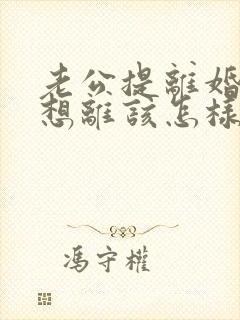 老公提離婚
想離該怎樣
馮守權